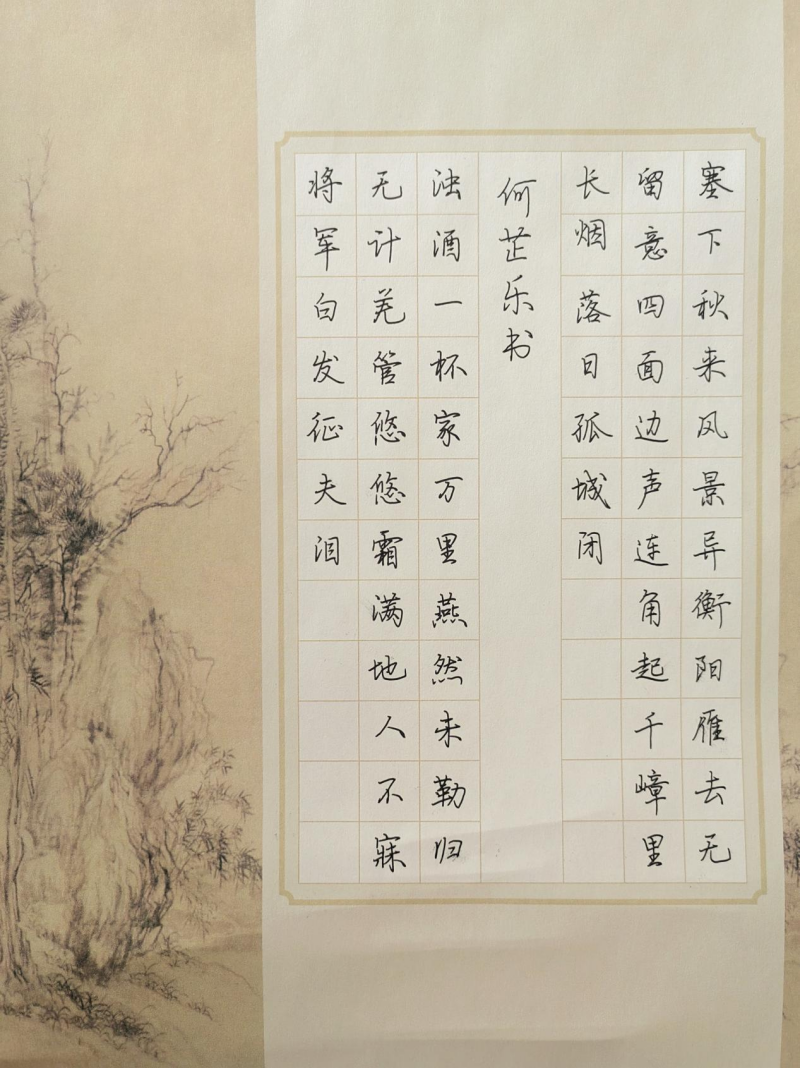 塞下秋来风景异衡阳雁去无
留意四面边声连角起千嶂里
长烟落日孤城闭
何芷乐书
浊酒一杯家万里燕然未勒归
无计羌管悠悠霜满地人不寐
将军白发征夫泪